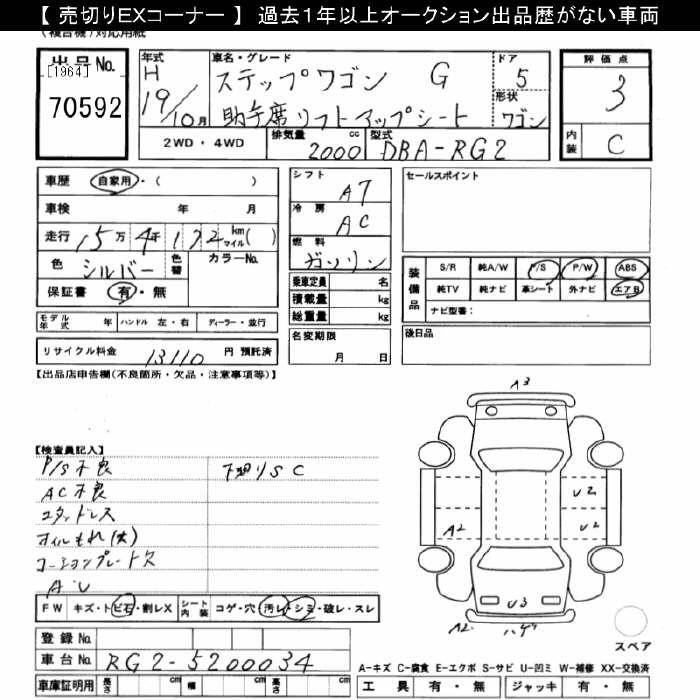 【 売切りEXコーナー 】 過去1年以上オークション出品歴がない車両
(複合機)対応用紙
出品No.
[1964]
70592
年式 H 19/10月
車名・グレード
ステップワゴン G
助手席リフトアップシート
ドア 5
形状 ワゴン
評価点 3
内装 C
2WD・4WD
排気量 2000 cc
型式 DBA-RG2
車歴 自家用・( )
車検 年 月
走行 15万4千172 km マイル( )
色 シルバー 色替
カラーNo.
保証書 有・無
シフト A7
冷房 AC
燃料 ガソリン
乗車定員 名
積載量 kg
総重量 kg
セールスポイント
装備品
S/R 純A/W P/S P/W ABS
純TV 純ナビ 革シート 外ナビ エアB
ナビ型番:
モデル年式 年 ハンドル 左・右 ディーラー・並行
名変期限 月 日
後日品
リサイクル料金 13110 円 預託済
【出品店申告欄(不良箇所・欠品・注意事項等)】
【検査員記入】
P/S不良
下廻りSC
AC不良
スタッドレス
オイルもれ(大)
コーションプレート欠
A・U
FW キズ・トビ石・割レX シート内装 コゲ・穴 汚レ・シミ・破レ・スレ
A3
U2
A2
U2
U3
A2
ハゲ
スペア
登録No.
車台No. RG2-5200034
車庫証明用 長さ cm 幅 cm 高さ cm
A-キズ C-腐食 E-エクボ S-サビ U-凹ミ W-補修 XX-交換済
工具 有・無 ジャッキ 有・無